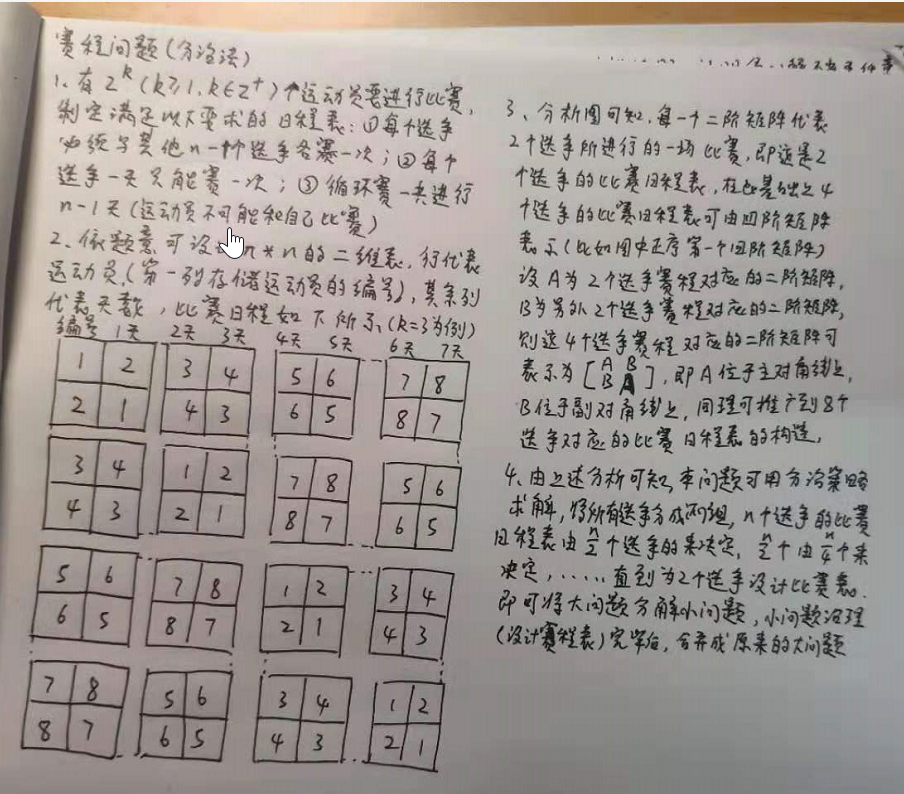 赛程问题(分治法)
1、有2^k(k≥1,k∈Z⁺)个运动员要进行比赛,
制定满足以下要求的日程表:①每个选手
必须与其他n-1个选手各赛一次;②每个
选手一天只能赛一次;③循环赛一共进行
n-1天(运动员不可能和自己比赛)
2、依题意,可设 n*n的二维表,行代表
运动员,(第一列存储运动员的编号),其余列
代表天数,比赛日程如下所示(k=3为例)
编号 1天 2天 3天 4天 5天 6天 7天
1 2 3 4 5 6 7 8
2 1 4 3 6 5 8 7
3 4 1 2 7 8 5 6
4 3 2 1 8 7 6 5
5 6 7 8 1 2 3 4
6 5 8 7 2 1 4 3
7 8 5 6 3 4 1 2
8 7 6 5 4 3 2 1
3、分析图可知,每一个二阶矩阵代表
2个选手所进行的一场比赛,即这是2
个选手的比赛日程表,在此基础之上4
个选手的比赛日程表可由四阶矩阵
表示(比如图中正序第一个四阶矩阵)
设A为2个选手赛程对应的二阶矩阵,
B为另外2个选手赛程对应的二阶矩阵,
则这4个选手赛程对应的二阶矩阵可
表示为[A B
B A],即A位于主对角线上,
B位于副对角线上,同理可推广到8个
选手对应的比赛日程表的构造,
4、由上述分析可知,本问题可用分治策略
求解,将所有选手分成两组,n个选手的比赛
日程表由n/2个选手的来决定,n/2个由n/4个来
决定,......直到为2个选手设计比赛表.
即可将大问题分解小问题,小问题治理
(设计赛程表)完毕后,合并成原来的大问题